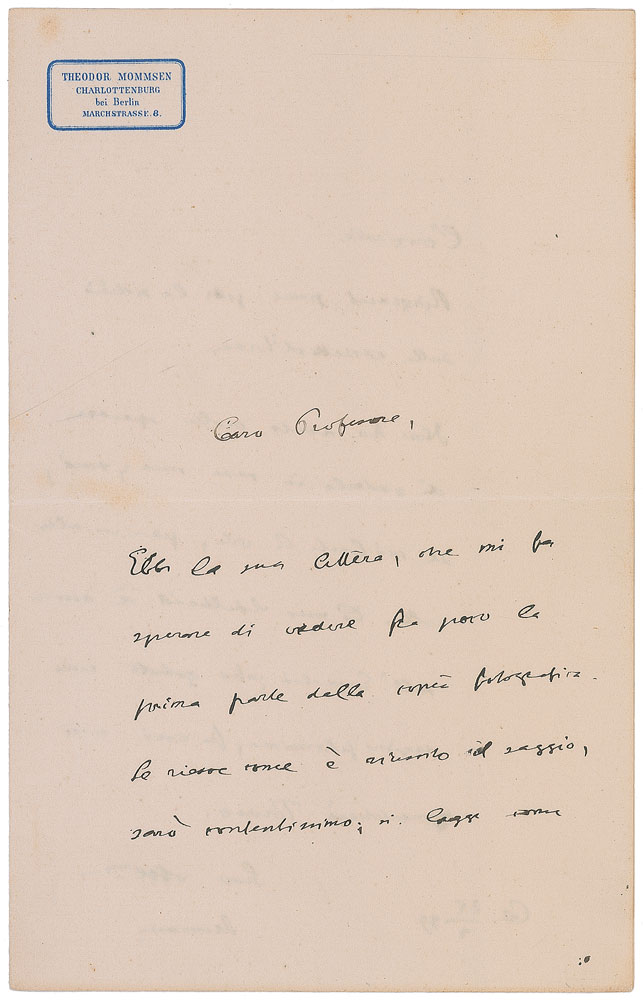 THEODOR MOMMSEN
CHARLOTTENBURG
bei Berlin
MARCHSTRASSE. 8.
Caro Professore,
Ebbi la sua lettera, che mi fa
sperare di vedere fra poco la
prima parte della copia fotografica.
Se riesce come è riuscito il saggio,
sarò contentissimo; si legge come